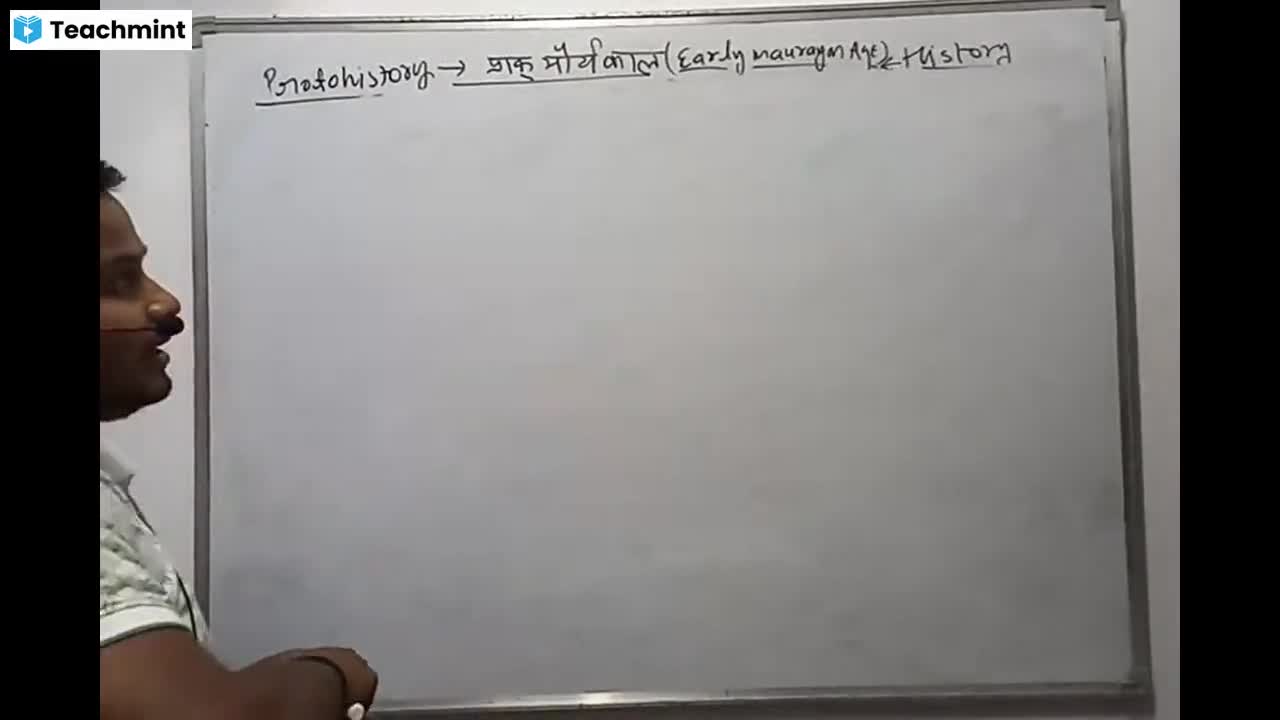 Teachmint
Protohistory → प्राक् मौर्यकाल (Early maurayan Age) ← History